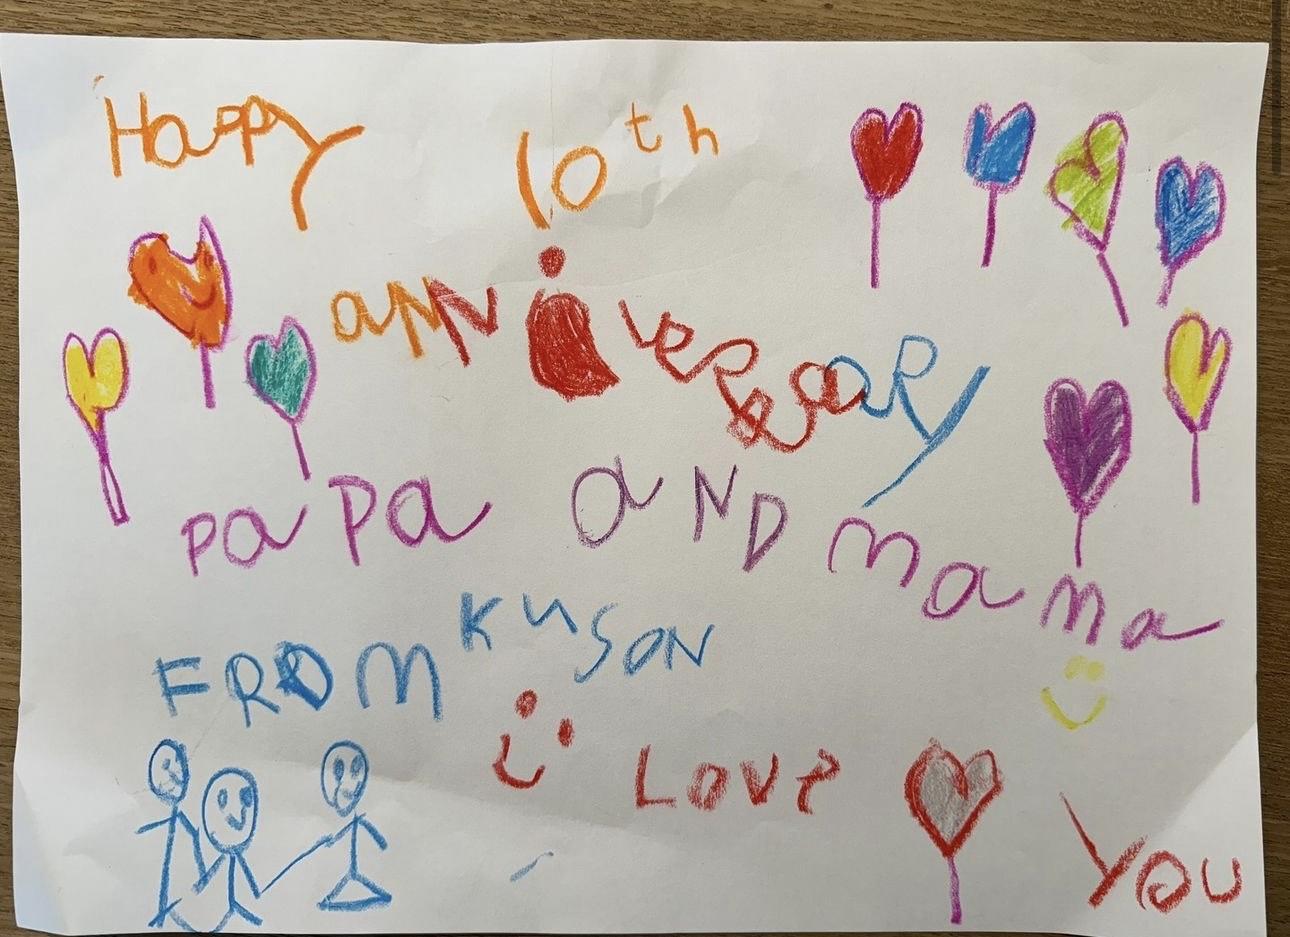 Happy 10th
aNNiveRsaRy
PaPa aND mama
FROM KuSON
Love You